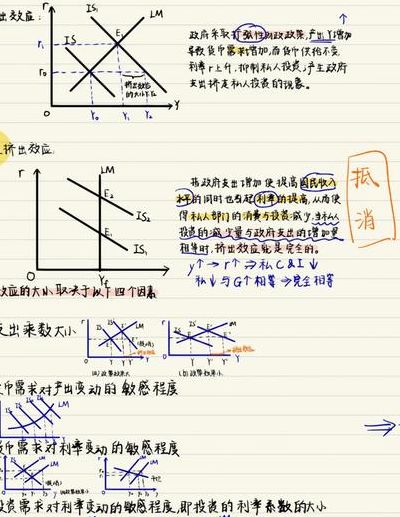 出效应:
政府采取扩张性财政政策,产出Y增加
导致货币需求增加,而货币供给不变
利率r上升,抑制私人投资,产生政府
支出挤走私人投资的现象。
r
IS₁
LM
IS
E₁
r₁
r₀
挤出效应
的大小Y₁Y₂
O
Y₀
Y₁
Y₂
Y
挤出效应:
指政府支出增加使提高国民收入
水平的同时也引起利率的提高,从而使
得私人部门的消费与投资减少,当私人
投资的减少量与政府支出的增加量
相等时,挤出效应就是完全的。
y↑→r↑⇒私C&I↓
私↓与G↑相等→完全相等
抵
消
r
LM
E₂
IS₂
E₁
IS₁
O
Y_f
Y
效应的大小取决于以下四个因素
支出乘数大小
(a)政策效果大
(b)政策效果小
币需求对产出变动的敏感程度
LM
币需求对利率变动的敏感程度
LM
投资需求对利率变动的敏感程度,即投资的利率系数的大小